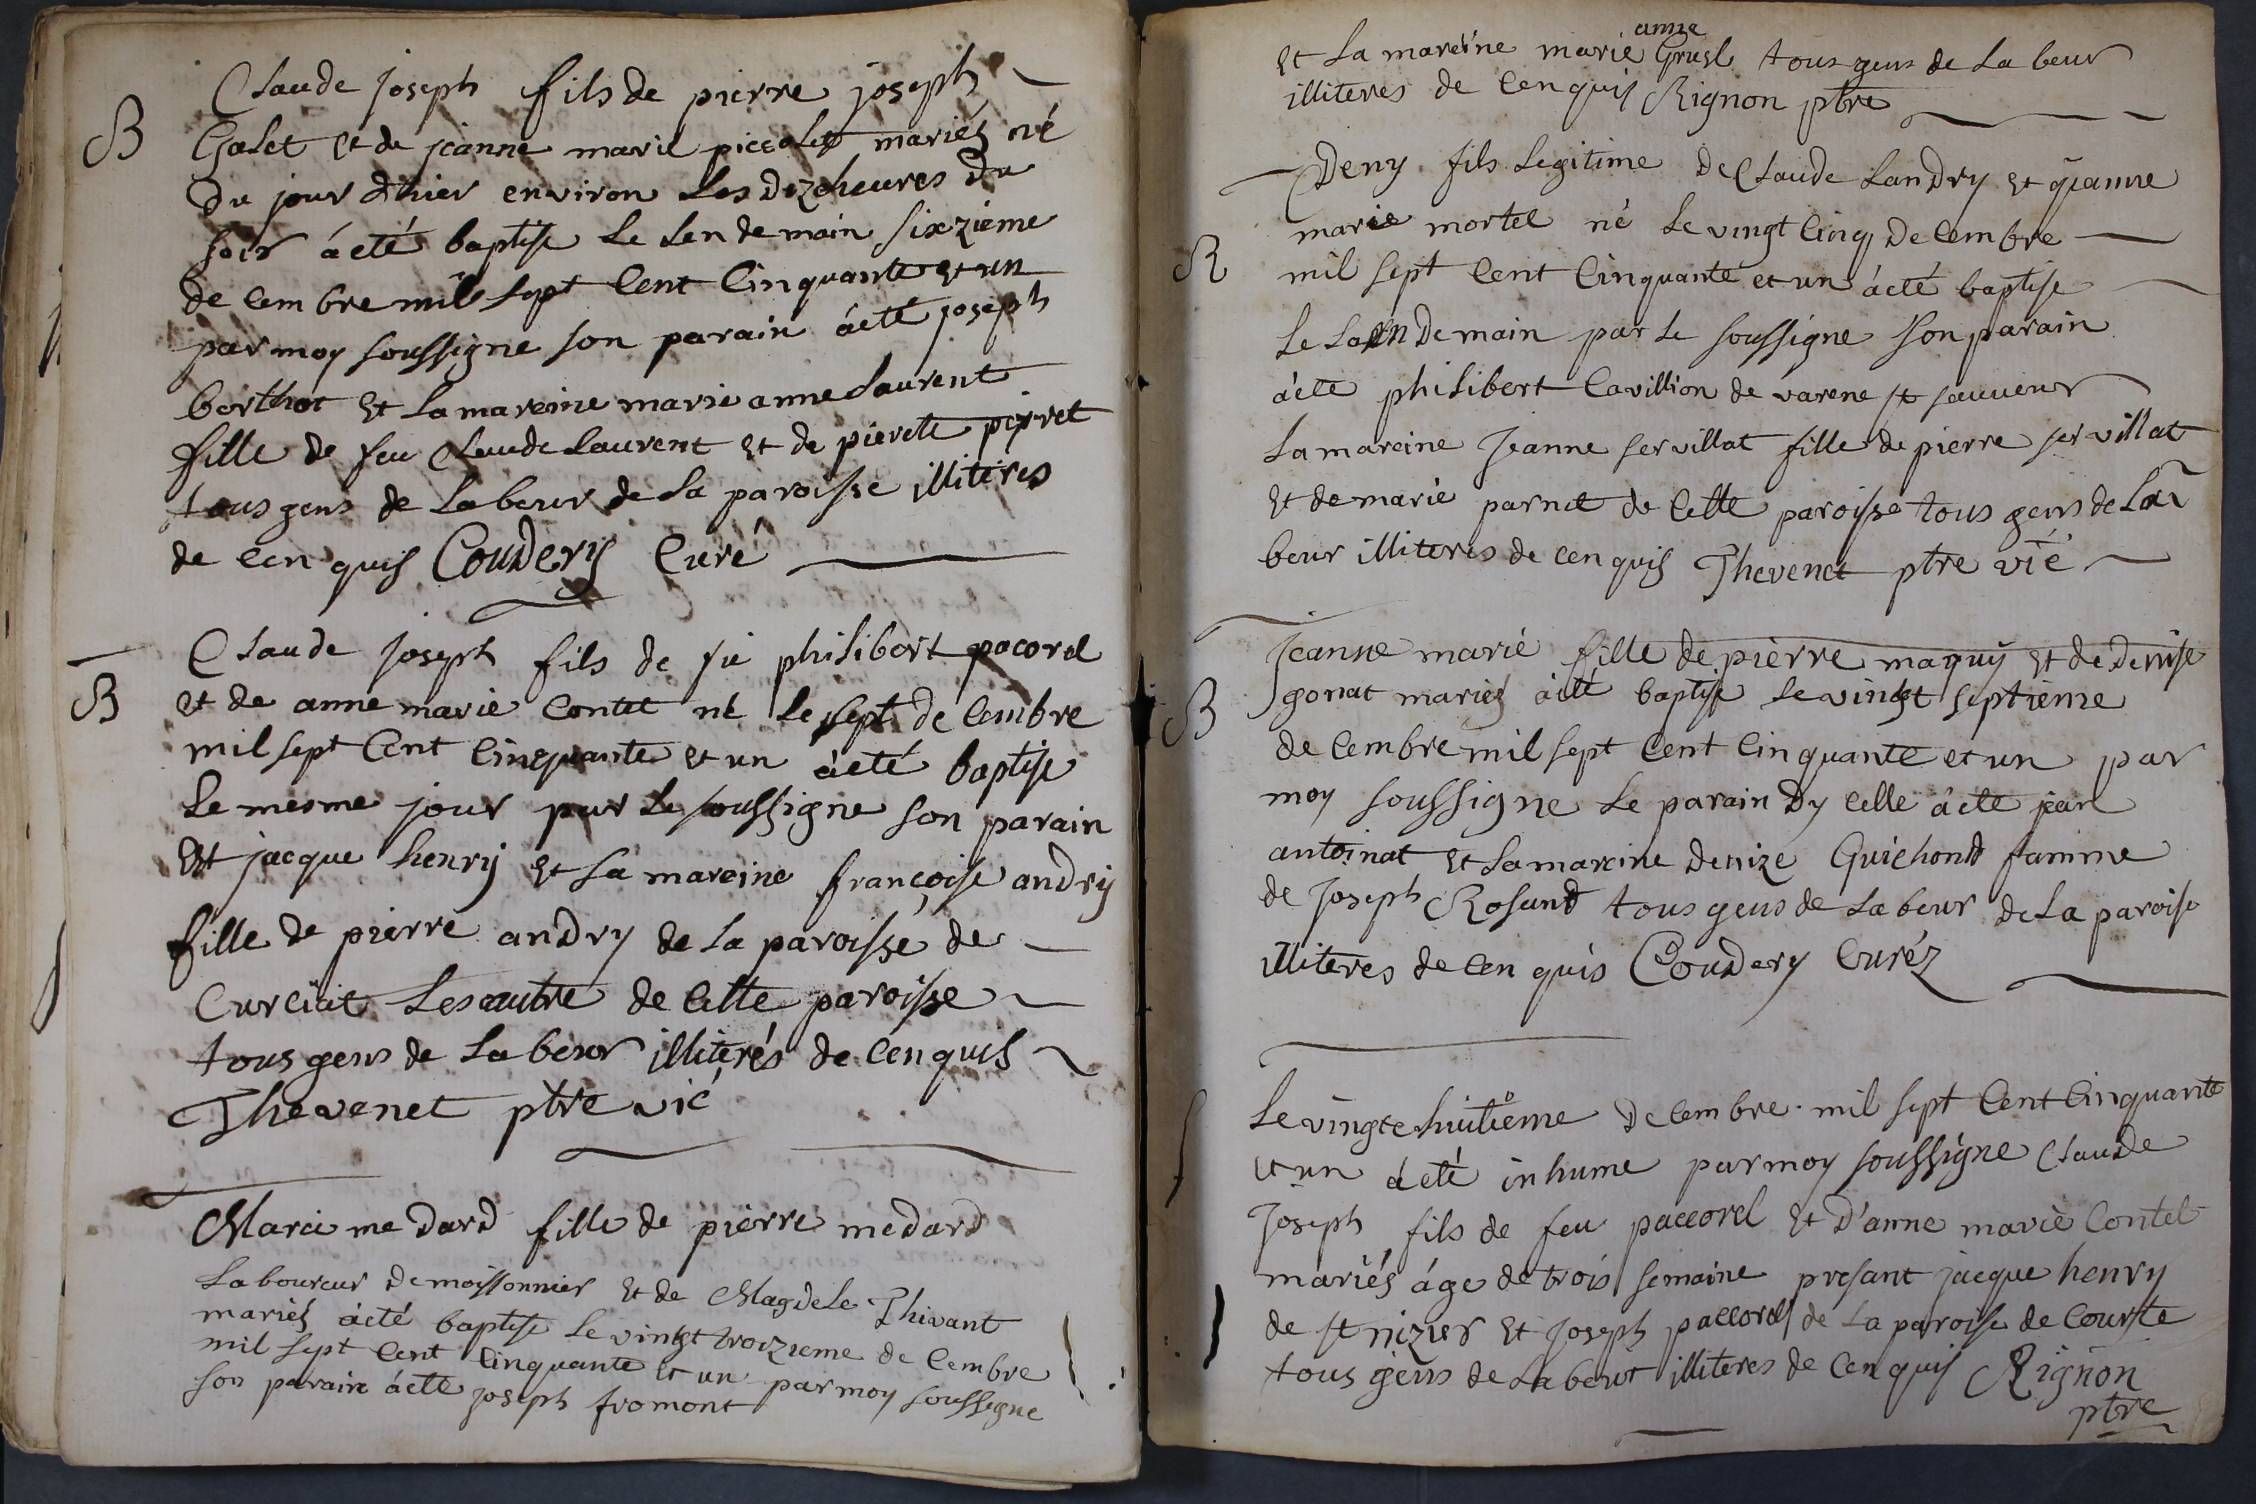 B
Claude joseph fils de pierre joseph
Galet et de jeanne marie piccolet mariés né
du jour dhier environ Les dixheures du
soir áeté baptise Le Lendemain sixzieme
decembre mil sept Cent Cinquante et un
par moy soussigne son parain áeté joseph
berthot Et La mareine marie anne Laurent
fille de feu Claude Laurent Et de pierete perret
tous gens de Labeur de La paroisse illiteres
de cen quis Coudery Curé
B
Claude joseph fils de fü philibert pacorel
et de anne marie Contet né Le sept decembre
mil sept Cent Cinquante et un áeté baptise
Le mesme jour par Le soussigne son parain
Est jacque henrÿ Et La mareine françoise andrÿ
fille de pierre andry de La paroisse de
Curciat Lesautre de Cette paroisse
tous gens de Labeur illiterés de Cenquis
Thevenet ptre vic
Marie medard fille de pierre medard
Laboureur demoissonnier Et de Magdele Thivant
mariés áeté baptise Le vingt troizieme decembre
mil sept Cent Cinquante et un parmoy soussigne
son parain áeté joseph fromont
et La mareine marie anne Grusl tous gens de Labeur
illiteres de Cenquis Rignon ptre
B
Deny fils Legitime de Claude Landry et jeanne
marie mortel né Le vingt Cinq decembre
mil sept Cent Cinquante et un áeté baptise
Le Landemain par Le soussigne son parain
áeté philibert Cavillion de varene st sauveur
La mareine Jeanne servillat fille de pierre servillat
Et de marie parnet de Cette paroisse tous gens de La
beur illiteres de cenquis Thevenet ptre vic
B
Jeanne marie fille de pierre maquÿ et de denise
gonat mariés áeté baptise Le vingt septieme
decembre mil sept Cent Cinquante et un par
moy soussigne Le parain dy celle áeté jean
antoinat Et La mareine denize Guichond famme
de joseph Rosand tous gens de Labeur de La paroise
illiteres de Cen quis Coudery Curéz
Le vingt huitieme decembre mil sept Cent Cinquante
et un áeté inhume par moy soussigne Claude
Joseph fils de feu paccorel Et D'anne marie Contel
mariés áge de trois semaine presant jacque henry
de st nizier Et Joseph paccorel de La paroise de Courte
tous gens de Labeur illiteres de Cenquis Rignon
ptre